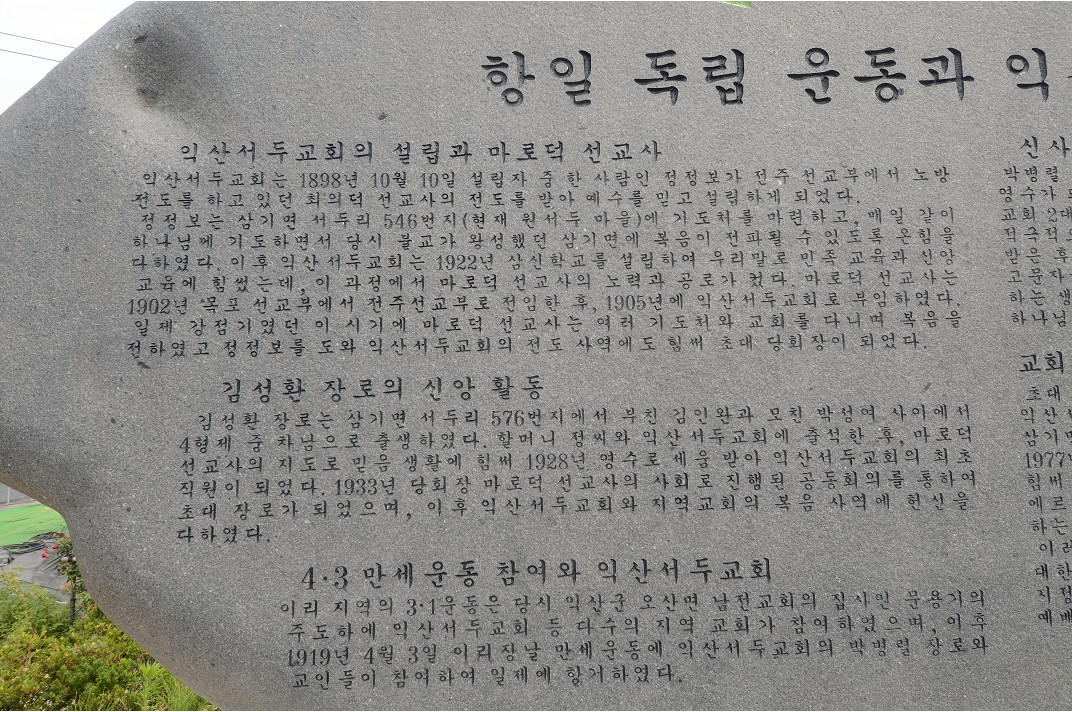 항일 독립 운동과 익
익산서두교회의 설립과 마로덕 선교사
익산서두교회는 1898년 10월 10일 설립자 중 한 사람인 정정보가 전주 선교부에서 노방
전도를 하고 있던 최의덕 선교사의 전도를 받아 예수를 믿고 설립하게 되었다.
정정보는 삼기면 서두리 546번지(현재 원서두 마을)에 기도처를 마련하고, 매일 같이
하나님께 기도하면서 당시 불교가 왕성했던 삼기면에 복음이 전파될 수 있도록 온힘을
다하였다. 이후 익산서두교회는 1922년 삼신학교를 설립하여 우리말로 민족 교육과 신앙
교육에 힘썼는데, 이 과정에서 마로덕 선교사의 노력과 공로가 컸다. 마로덕 선교사는
1902년 목포 선교부에서 전주선교부로 전임한 후, 1905년에 익산서두교회로 부임하였다.
일제 강점기였던 이 시기에 마로덕 선교사는 여러 기도처와 교회를 다니며 복음을
전하였고 정정보를 도와 익산서두교회의 전도 사역에도 힘써 초대 당회장이 되었다.
김성환 장로의 신앙 활동
김성환 장로는 삼기면 서두리 576번지에서 부친 김인완과 모친 박성여 사이에서
4형제 중 차남으로 출생하였다. 할머니 정씨와 익산서두교회에 출석한 후, 마로덕
선교사의 지도로 믿음 생활에 힘써 1928년 영수로 세움 받아 익산서두교회의 최초
직원이 되었다. 1933년 당회장 마로덕 선교사의 사회로 진행된 공동회의를 통하여
초대 장로가 되었으며, 이후 익산서두교회와 지역교회의 복음 사역에 헌신을
다하였다.
4·3 만세운동 참여와 익산서두교회
이리 지역의 3·1운동은 당시 익산군 오산면 남전교회의 집사인 문용기의
주도하에 익산서두교회 등 다수의 지역 교회가 참여하였으며, 이후
1919년 4월 3일 이리장날 만세운동에 익산서두교회의 박병렬 장로와
교인들이 참여하여 일제에 항거하였다.
신사
박병렬
영수가
교회 2대
적극적
받은 후
고문자
하는 생
하나님
교회
초대
익산
삼기면
1977
힘써
에르
하는
이러
대한
지정
예배